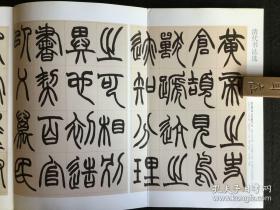 黃帝之史
倉頡見鳥
獸蹏迒之
迹知分理
之可相別
異也初造
書契百官
以乂萬民